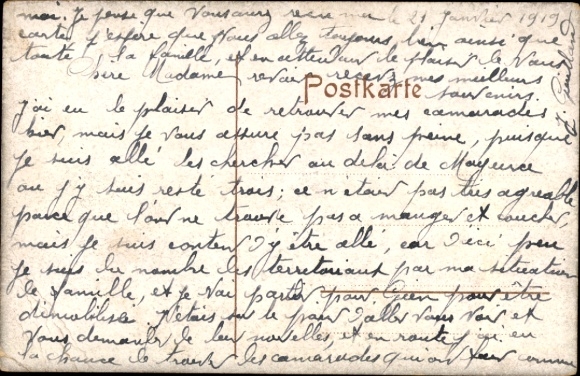 le 21 Janvier 1919
Chère Madame
J'ai eu le plaisir de retrouver mes camarades
hier, mais je vous assure pas sans peine, puisque
je suis allé les chercher au delà de Mayence
ou j'y suis resté trois; ce n'était pas très agreable
parce que l'on ne trouve pas a manger et coucher,
mais je suis content d'y être allé, car d'ici peu
je suis du nombre des territoriaux par ma situation
de famille, et je vai partir pour Gien pour être
démobilisé J'étais sur le point d'aller vous voir et
vous demander de leur nouvelles, et en route j'ai eu
la chance de trouver des camarades qui on
moi. Je pense que vous aurez recu ma
carte J'espere que vous allez toujours bien ainsi que
toute la famille, et en attendant le plaisir de vous
revoir recevez mes meilleurs
souvenirs.
Postkarte